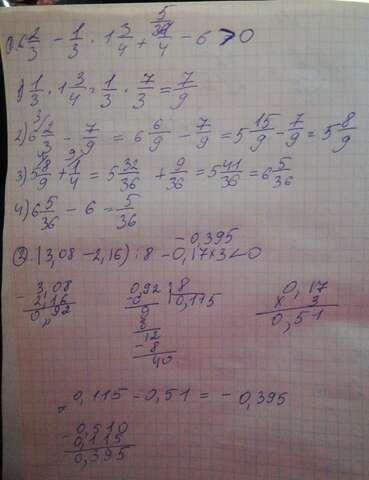 5/36
1) 6 2/3 - 1/3 · 1 3/4 + 1/4 - 6 > 0
1) 1/3 · 1 3/4 = 1/3 · 7/3 = 7/9
2) 6 2/3 - 7/9 = 6 6/9 - 7/9 = 5 15/9 - 7/9 = 5 8/9
3) 5 8/9 + 1/4 = 5 32/36 + 9/36 = 5 41/36 = 6 5/36
4) 6 5/36 - 6 = 5/36
-0,395
2). (3,08 - 2,16) : 8 - 0,17×3 < 0
- 3,08
2,16
0,92
0,92 | 8
0,115
9
8
12
- 8
40
0,17
× 3
0,51
= 0,115 - 0,51 = - 0,395
- 0,510
0,115
0,395